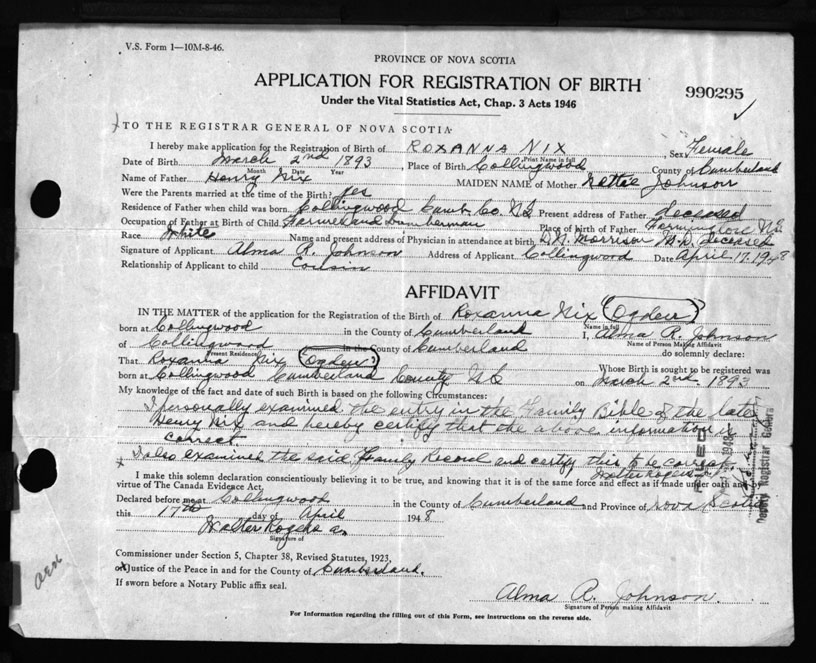 V.S. Form 1—10M-8-46.
PROVINCE OF NOVA SCOTIA
APPLICATION FOR REGISTRATION OF BIRTH
990295
Under the Vital Statistics Act, Chap. 3 Acts 1946
TO THE REGISTRAR GENERAL OF NOVA SCOTIA
I hereby make application for the Registration of Birth of ROXANNA NIX Sex Female
Print Name in full
Date of Birth March 2nd 1893, Place of Birth Collingwood County of Cumberland
Month Date Year
Name of Father Henry Nix MAIDEN NAME of Mother Nettie Johnson
Were the Parents married at the time of the Birth? Yes
Residence of Father when child was born Collingwood Cumb. Co. N.S. Present address of Father deceased
Occupation of Father at Birth of Child Farmer and Lumberman Place of birth of Father Farmington N.S.
Race White Name and present address of Physician in attendance at birth Morrison M.D. deceased
Signature of Applicant Alma R. Johnson Address of Applicant Collingwood Date April 17. 1948
Relationship of Applicant to child Cousin
AFFIDAVIT
IN THE MATTER of the application for the Registration of the Birth of Roxanna Nix (Ogden)
Name in full
born at Collingwood in the County of Cumberland I, Alma R. Johnson
Name of Person Making Affidavit
of Collingwood in the County of Cumberland do solemnly declare:
Present Residence
That Roxanna Nix (Ogden) Whose Birth is sought to be registered was
born at Collingwood Cumberland County N.S. on March 2nd 1893
My knowledge of the fact and date of such Birth is based on the following Circumstances:
I personally examined the entry in the Family Bible of the late
Henry Nix and hereby certify that the above information is
correct
I also examined the said Family Record and certify this to be correct.
Walter Rogers
I make this solemn declaration conscientiously believing it to be true, and knowing that it is of the same force and effect as if made under oath and by
virtue of The Canada Evidence Act,
Declared before me at Collingwood in the County of Cumberland and Province of Nova Scotia
this 17th day of April 1948
Walter Rogers
Signature of
Commissioner under Section 5, Chapter 38, Revised Statutes, 1923,
or Justice of the Peace in and for the County of Cumberland.
If sworn before a Notary Public affix seal.
Alma R. Johnson
Signature of Person making Affidavit
For Information regarding the filling out of this Form, see instructions on the reverse side.
FILED
1948
Deputy Registrar General